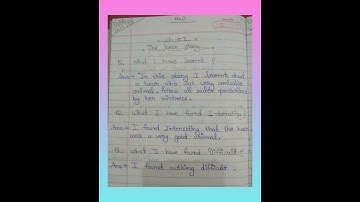 The bear story
Q. What I have learnt?
Ans→ In this story I learnt that
a bear who was very amicable
animal. follow all
by her mistress.
Q. What I have found Interesting?
Ans→ I found Interesting that the bear
was a very good animal.
Q. What I have found difficult?
Ans→ I found nothing difficult.